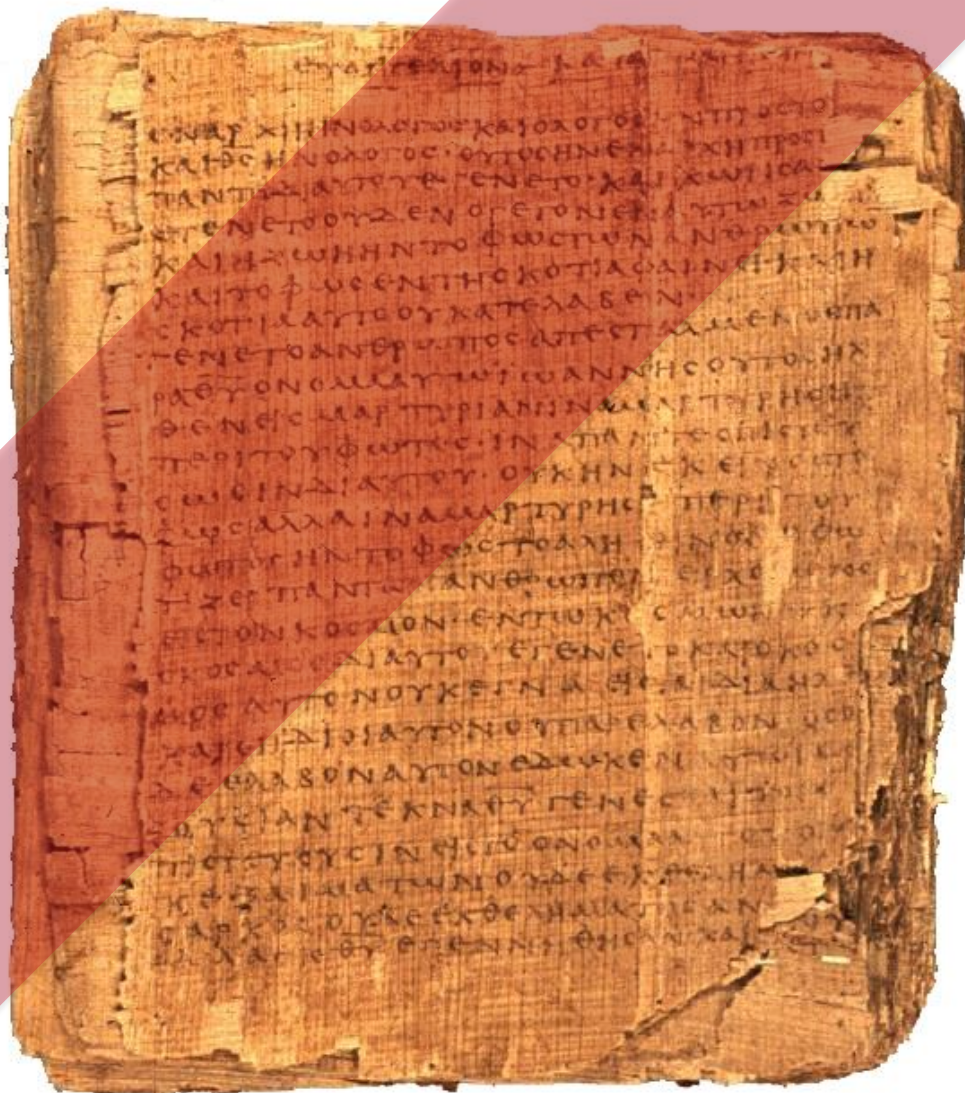 ΕΥΑΓΓΕΛΙΟΝ ΚΑΤΑ
ΕΝΑΡΧΗΗΝΟΛΟΓΟϹΚΑΙΟΛΟΓΟϹΗΝΠΡΟϹΤΟ
ΚΑΙΘϹΗΝΟΛΟΓΟϹ·ΟΥΤΟϹΗΝΕΝΑΡΧΗΠΡΟϹΤ
ΠΑΝΤΑΔΙΑΥΤΟΥΕΓΕΝΕΤΟ·ΚΑΙΧΩΡΙϹΑ
ΕΓΕΝΕΤΟΟΥΔΕΝΟΓΕΓΟΝΕΝΕΝΑΥΤΩΖΩ
ΚΑΙΗΖΩΗΗΝΤΟΦΩϹΤΩΝΑΝΘΡΩΠΩ
ΚΑΙΤΟΦΩϹΕΝΤΗϹΚΟΤΙΑΦΑΙΝΕΙΚΑΙΗ
ϹΚΟΤΙΑΑΥΤΟΟΥΚΑΤΕΛΑΒΕΝ·
ΕΓΕΝΕΤΟΑΝΘΡΩΠΟϹΑΠΕϹΤΑΛΜΕΝΟϹΠΑ
ΡΑΘΥΟΝΟΜΑΑΥΤΩΙΩΑΝΝΗϹΟΥΤΟϹΗΛ
ΘΕΝΕΙϹΜΑΡΤΥΡΙΑΝΙΝΑΜΑΡΤΥΡΗϹΗ
ΠΕΡΙΤΟΥΦΩΤΟϹ·ΙΝΑΠΑΝΤΕϹΠΙϹΤΕΥ
ϹΩϹΕΙΝΔΙΑΥΤΟΥ·ΟΥΚΗΝΕΚΕΙΝΟϹΤΟ
ΦΩϹΑΛΛΑΙΝΑΜΑΡΤΥΡΗϹΗΠΕΡΙΤΟΥ
ΦΩΤΟϹΗΝΤΟΦΩϹΤΟΑΛΗΘΙΝΟΝΟΦΩ
ΤΙΖΕΙΠΑΝΤΑΑΝΘΡΩΠΟΝΕΡΧΟΜΕΝΟ
ΕΙϹΤΟΝΚΟϹΜΟΝ·ΕΝΤΩΚΟϹΜΩΗΝΚ
ΟΚΟϹΜΟϹΔΙΑΥΤΟΥΕΓΕΝΕΤΟΚΑΙΟΚΟϹ
ΜΟϹΑΥΤΟΝΟΥΚΕΓΝΩΕΙϹΤΑΙΔΙΑΗΛ
ΚΑΙΟΙΙΔΙΟΙΑΥΤΟΝΟΥΠΑΡΕΛΑΒΟΝΟϹΟ
ΔΕΕΛΑΒΟΝΑΥΤΟΝΕΔΩΚΕΝΑΥΤΟΙϹ
ΞΟΥϹΙΑΝΤΕΚΝΑΘΥΓΕΝΕϹΘΑΙΤΟΙϹ
ΠΙϹΤΕΥΟΥϹΙΝΕΙϹΤΟΟΝΟΜΑΑ
ΚΕΞΑΙΜΑΤΩΝΟΥΔΕΕΚΘΕΛΗΜΑ
ϹΑΡΚΟϹΟΥΔΕΕΚΘΕΛΗΜΑΤΟϹΑΝ
ΑΛΛΑΕΚΘΥΕΓΕΝΝΗΘΗϹΑΝΚΑΙ